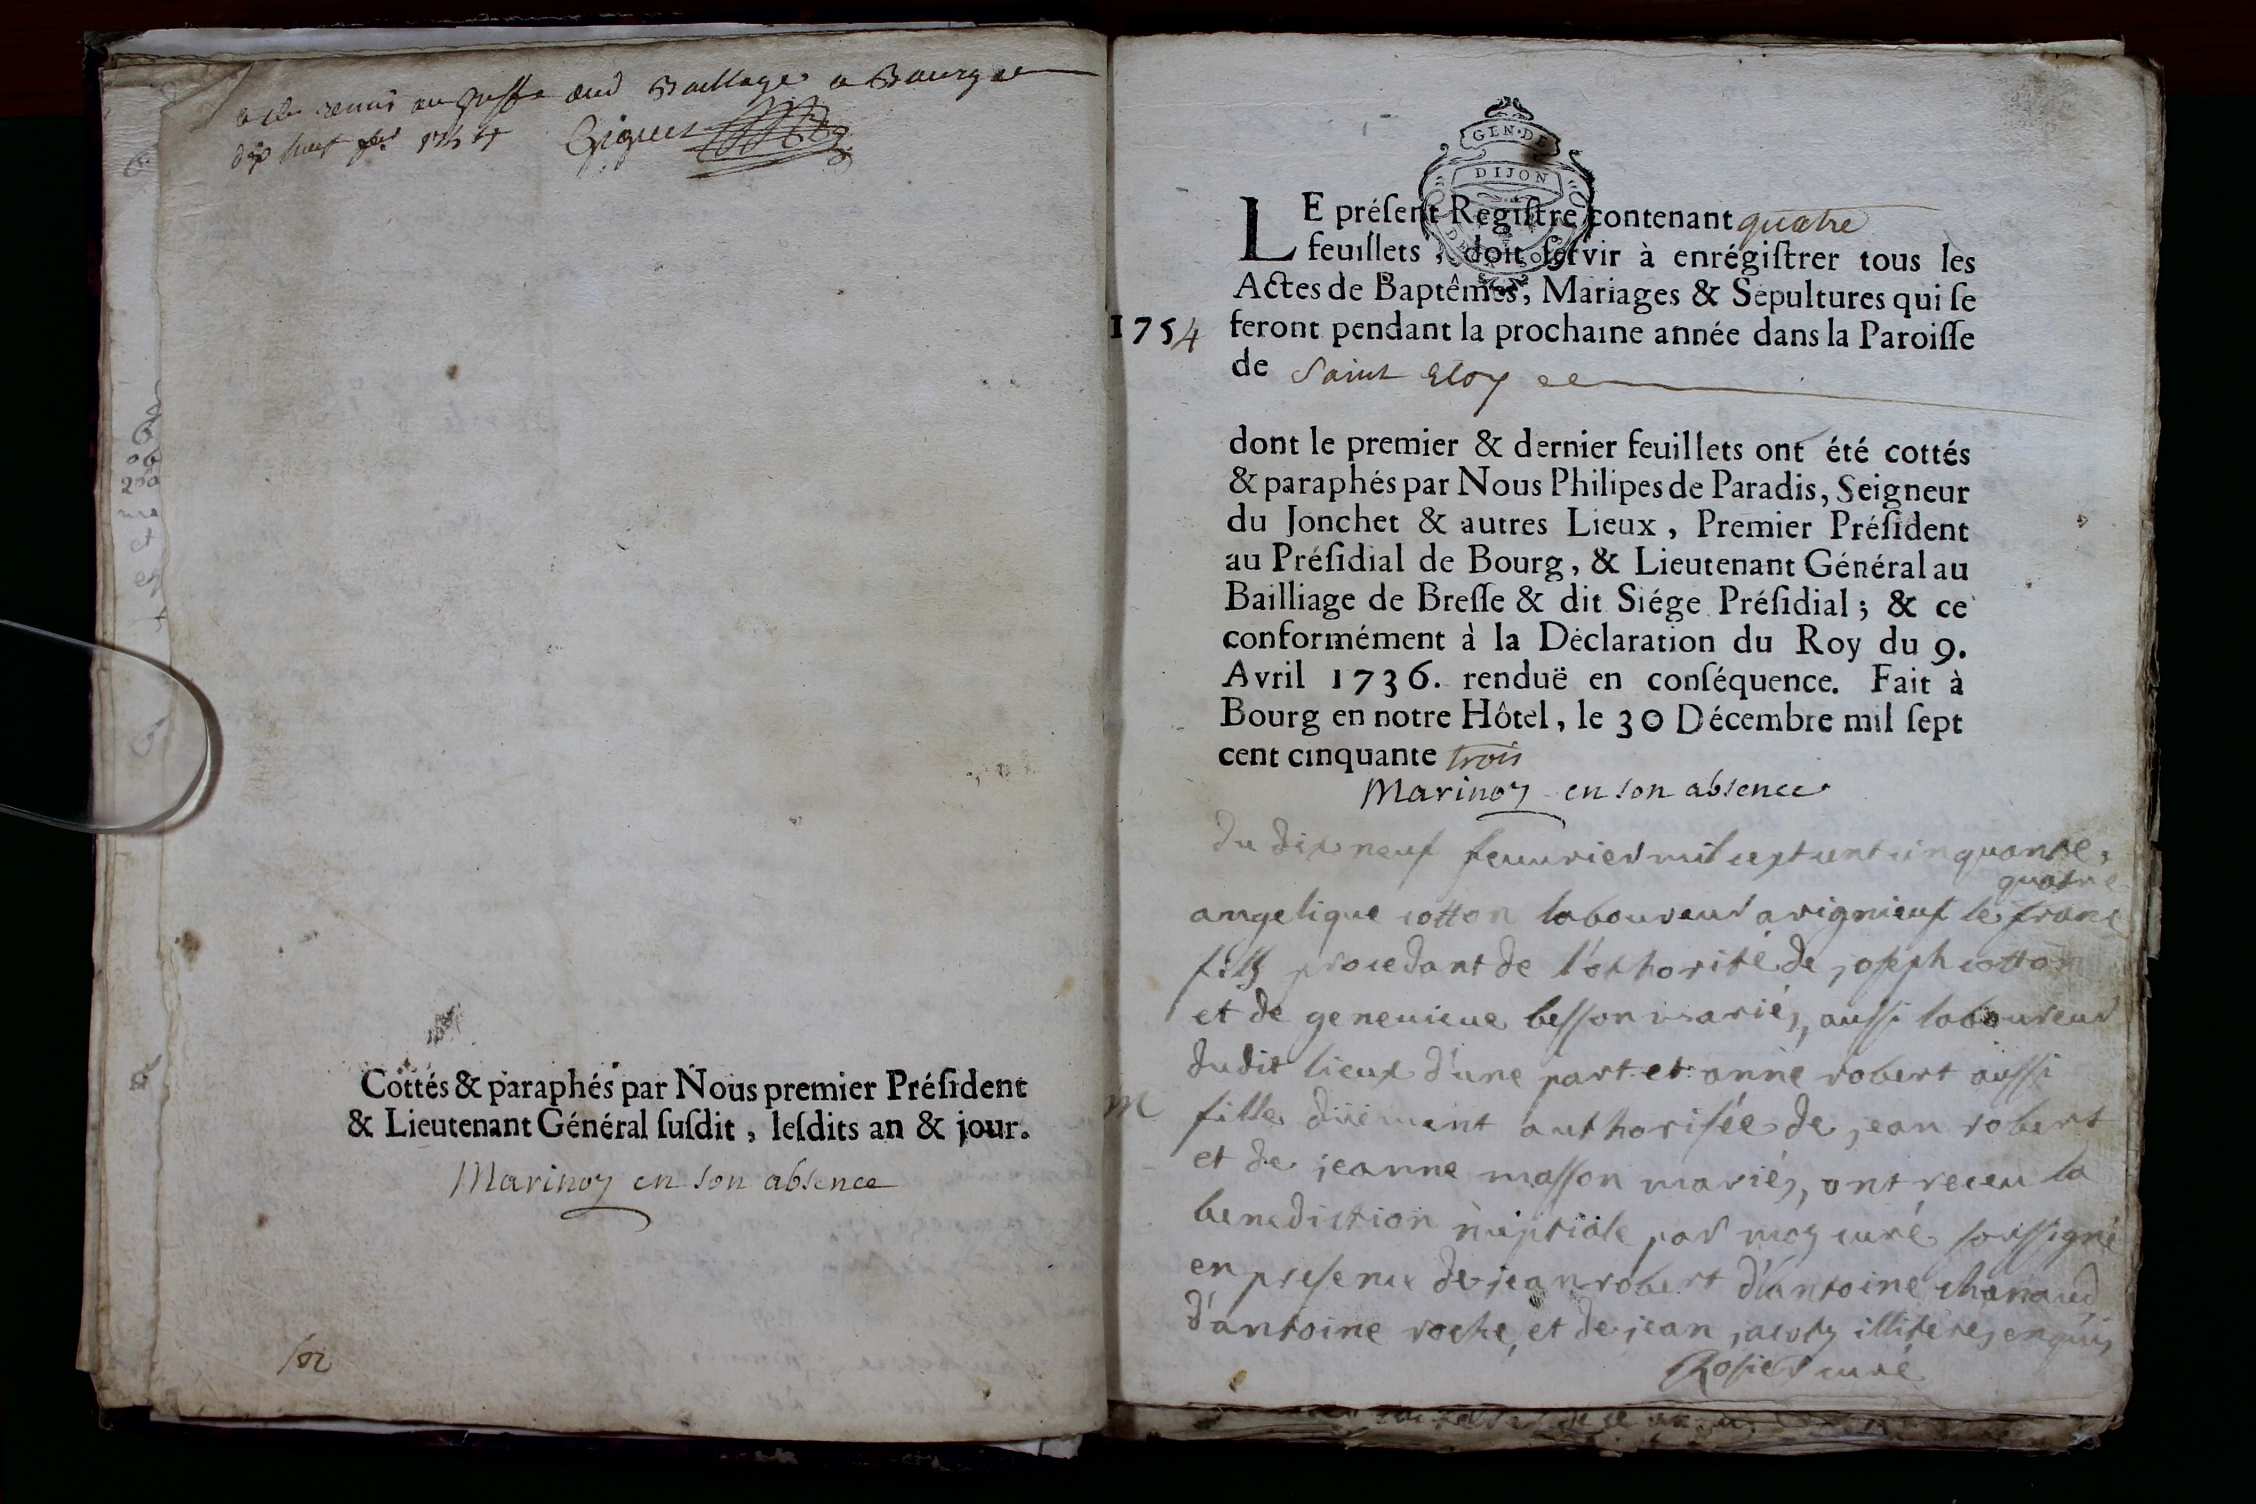 a été remis au greffe dud Bailliage a Bourg ce
Cottés & paraphés par Nous premier Président
& Lieutenant Général susdit, lesdits an & jour.
Marinon en son absence
GEN·DE
DIJON
LE présent Registre contenant quatre
feuillets, doit servir à enrégistrer tous les
Actes de Baptêmes, Mariages & Sepultures qui se
1754 feront pendant la prochaine année dans la Paroisse
de Saint Eloy
dont le premier & dernier feuillets ont été cottés
& paraphés par Nous Philipes de Paradis, Seigneur
du Jonchet & autres Lieux, Premier Président
au Présidial de Bourg, & Lieutenant Général au
Bailliage de Bresse & dit Siége Présidial; & ce
conformément à la Déclaration du Roy du 9.
Avril 1736. renduë en conséquence. Fait à
Bourg en notre Hôtel, le 30 Décembre mil sept
cent cinquante trois
Marinon en son absence
du dix neuf feuurier mil sept cent cinquante
quatre
angelique cotton laboureur a rignieuf le franc
fils procedant de l'othorité de joseph cotton
et de geneuieue besson mariés, aussi laboureur
dudit lieux d'une part et anne robert aussi
M fille düement authorisée de jean robert
et de jeanne masson mariés, ont receu la
benediction nuptiale par moy curé soussigné
en presence de jean robert d'antoine chanaud
d'antoine roche, et de jean jacoty illiterés enquis
Rosier curé